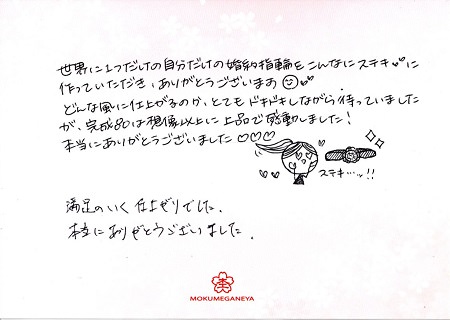 世界に1つだけの自分だけの婚約指輪をこんなにステキ♥に
作っていただき、ありがとうございます
どんな風に仕上がるのか、とてもドキドキしながら待っていました
が、完成品は想像以上に上品で感動しました！
本当にありがとうございました♡♡♡
ステキ…ッ!!
満足のいく仕上がりでした。
本当にありがとうございました。
MOKUMEGANEYA